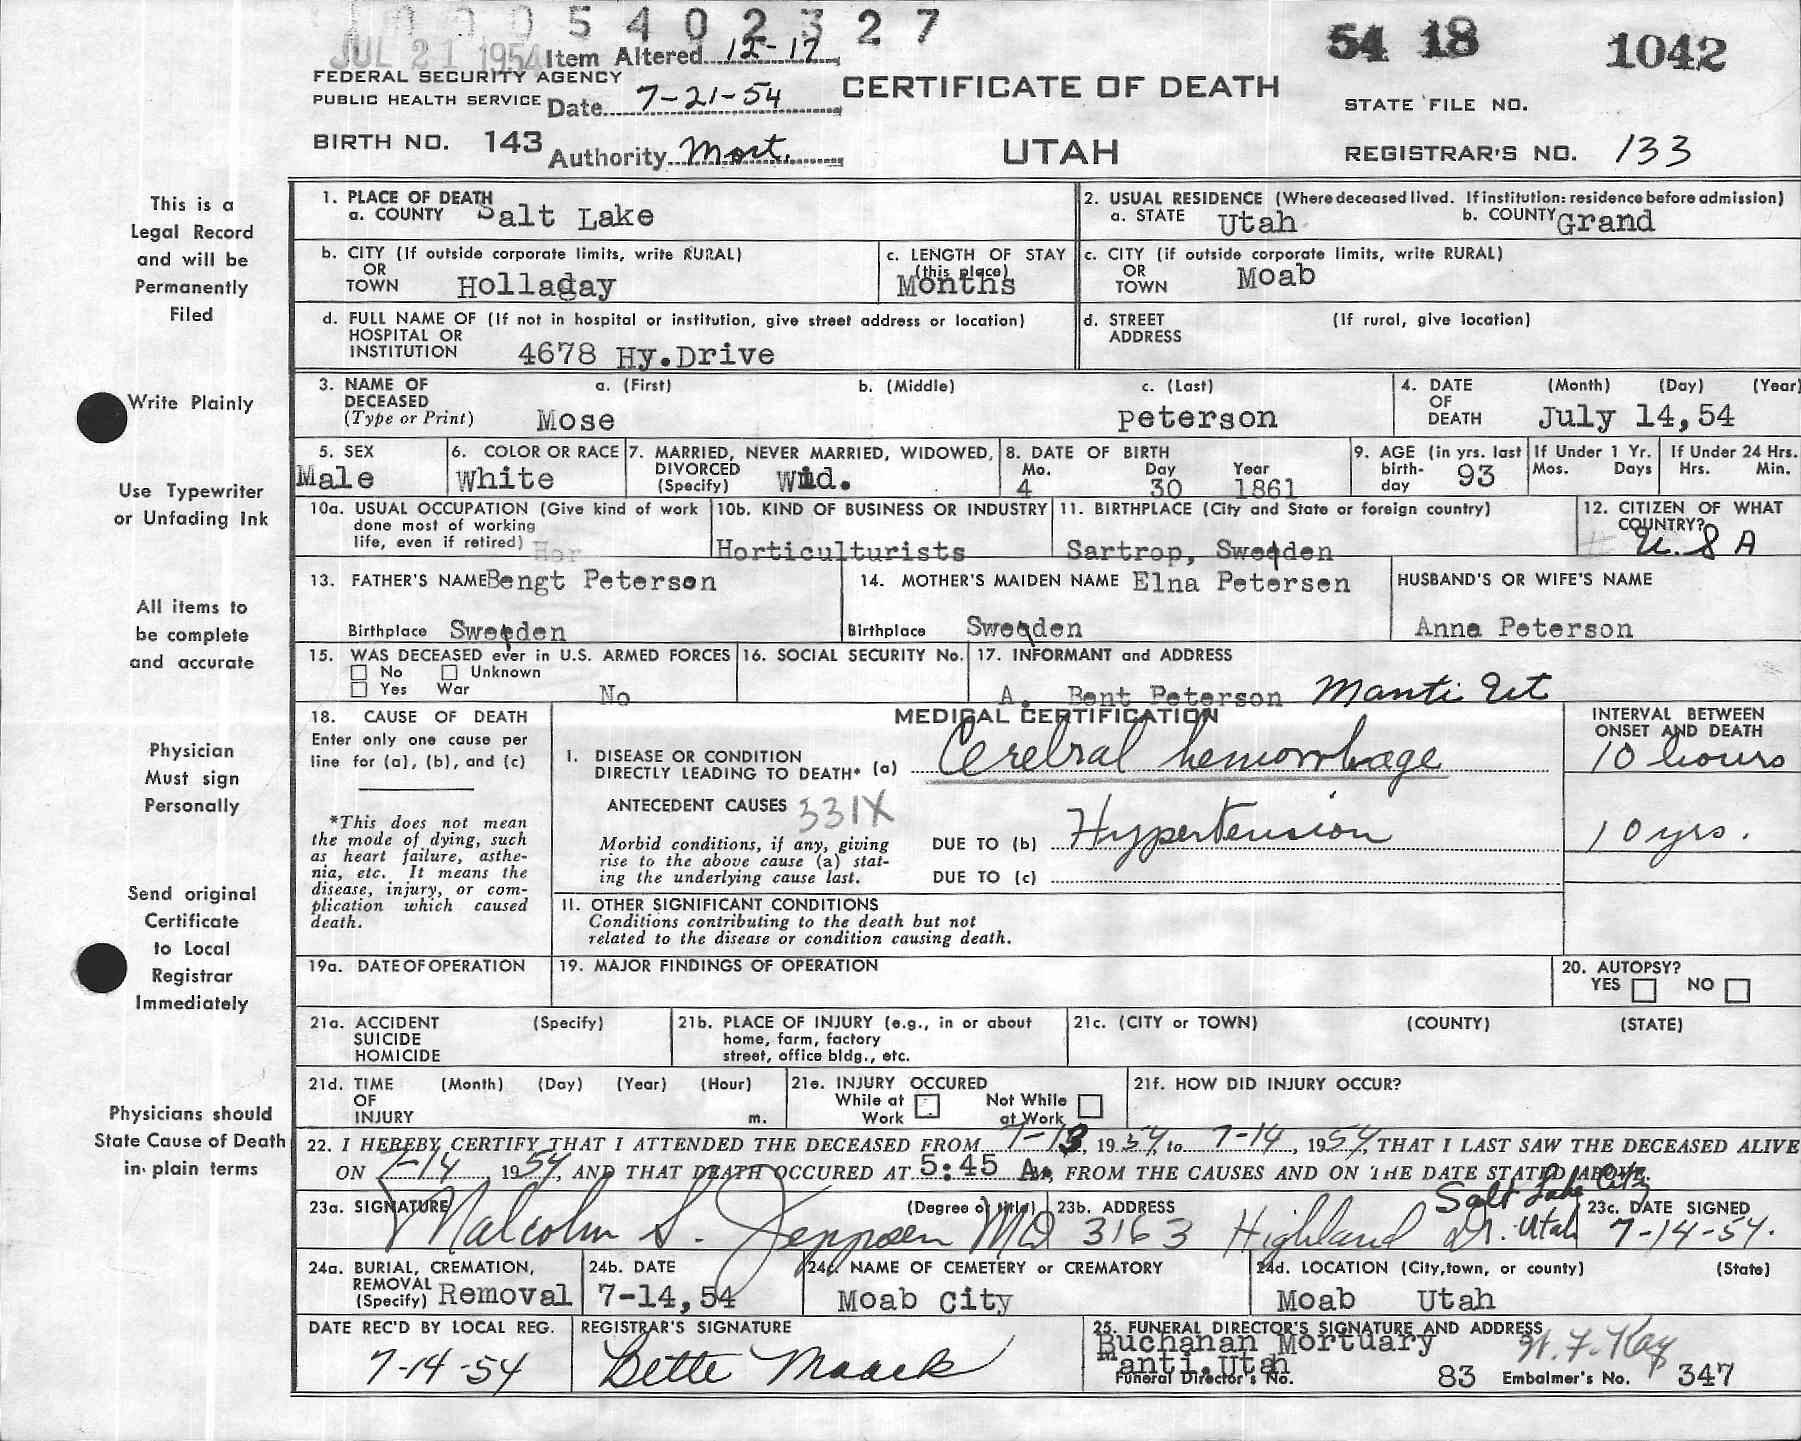 0005402327
JUL 21 1954 Item Altered 12-17
54 18 1042
FEDERAL SECURITY AGENCY
PUBLIC HEALTH SERVICE Date 7-21-54
CERTIFICATE OF DEATH
STATE FILE NO.
BIRTH NO. 143 Authority Mort.
UTAH
REGISTRAR'S NO. 133
This is a
Legal Record
and will be
Permanently
Filed
Write Plainly
Use Typewriter
or Unfading Ink
All items to
be complete
and accurate
Physician
Must sign
Personally
Send original
Certificate
to Local
Registrar
Immediately
Physicians should
State Cause of Death
in plain terms
1. PLACE OF DEATH
a. COUNTY Salt Lake
2. USUAL RESIDENCE (Where deceased lived. If institution: residence before admission)
a. STATE Utah b. COUNTY Grand
b. CITY (If outside corporate limits, write RURAL)
OR
TOWN Holladay
c. LENGTH OF STAY
(this place)
Months
c. CITY (if outside corporate limits, write RURAL)
OR
TOWN Moab
d. FULL NAME OF (If not in hospital or institution, give street address or location)
HOSPITAL OR
INSTITUTION 4678 Hy.Drive
d. STREET (If rural, give location)
ADDRESS
3. NAME OF a. (First) b. (Middle) c. (Last)
DECEASED
(Type or Print) Mose Peterson
4. DATE (Month) (Day) (Year)
OF
DEATH July 14,54
5. SEX
Male
6. COLOR OR RACE
White
7. MARRIED, NEVER MARRIED, WIDOWED,
DIVORCED
(Specify) Wid.
8. DATE OF BIRTH
Mo. Day Year
4 30 1861
9. AGE (in yrs. last
birth-
day 93
If Under 1 Yr.
Mos. Days
If Under 24 Hrs.
Hrs. Min.
10a. USUAL OCCUPATION (Give kind of work
done most of working
life, even if retired) Hor
10b. KIND OF BUSINESS OR INDUSTRY
Horticulturists
11. BIRTHPLACE (City and State or foreign country)
Sartrop, Sweden
12. CITIZEN OF WHAT
COUNTRY?
U. S A
13. FATHER'S NAME Bengt Peterson
Birthplace Sweden
14. MOTHER'S MAIDEN NAME Elna Petersen
Birthplace Sweden
HUSBAND'S OR WIFE'S NAME
Anna Peterson
15. WAS DECEASED ever in U.S. ARMED FORCES
No Unknown
Yes War No
16. SOCIAL SECURITY No.
17. INFORMANT and ADDRESS
A. Bent Peterson Manti Ut
18. CAUSE OF DEATH
Enter only one cause per
line for (a), (b), and (c)
*This does not mean
the mode of dying, such
as heart failure, asthe-
nia, etc. It means the
disease, injury, or com-
plication which caused
death.
MEDICAL CERTIFICATION
INTERVAL BETWEEN
ONSET AND DEATH
I. DISEASE OR CONDITION
DIRECTLY LEADING TO DEATH* (a) Cerebral hemorrhage 10 hours
ANTECEDENT CAUSES 331X
Morbid conditions, if any, giving
rise to the above cause (a) stat-
ing the underlying cause last.
DUE TO (b) Hypertension 10 yrs.
DUE TO (c)
II. OTHER SIGNIFICANT CONDITIONS
Conditions contributing to the death but not
related to the disease or condition causing death.
19a. DATE OF OPERATION
19. MAJOR FINDINGS OF OPERATION
20. AUTOPSY?
YES NO
21a. ACCIDENT (Specify)
SUICIDE
HOMICIDE
21b. PLACE OF INJURY (e.g., in or about
home, farm, factory
street, office bldg., etc.
21c. (CITY or TOWN) (COUNTY) (STATE)
21d. TIME (Month) (Day) (Year) (Hour)
OF
INJURY m.
21e. INJURY OCCURED
While at Not While
Work at Work
21f. HOW DID INJURY OCCUR?
22. I HEREBY CERTIFY THAT I ATTENDED THE DECEASED FROM 7-13, 1954, to 7-14, 1954, THAT I LAST SAW THE DECEASED ALIVE
ON 7-14 1954, AND THAT DEATH OCCURED AT 5:45 A m, FROM THE CAUSES AND ON THE DATE STATED ABOVE.
23a. SIGNATURE (Degree or title)
Malcolm S. Jeppsen MD
23b. ADDRESS
3163 Highland Dr. Salt Lake City Utah
23c. DATE SIGNED
7-14-54.
24a. BURIAL, CREMATION,
REMOVAL
(Specify) Removal
24b. DATE
7-14,54
24c. NAME OF CEMETERY or CREMATORY
Moab City
24d. LOCATION (City, town, or county) (State)
Moab Utah
DATE REC'D BY LOCAL REG.
7-14-54
REGISTRAR'S SIGNATURE
Bette Maack
25. FUNERAL DIRECTOR'S SIGNATURE AND ADDRESS
Buchanan Mortuary W. F. Kay
Manti, Utah
Funeral Director's No. 83 Embalmer's No. 347